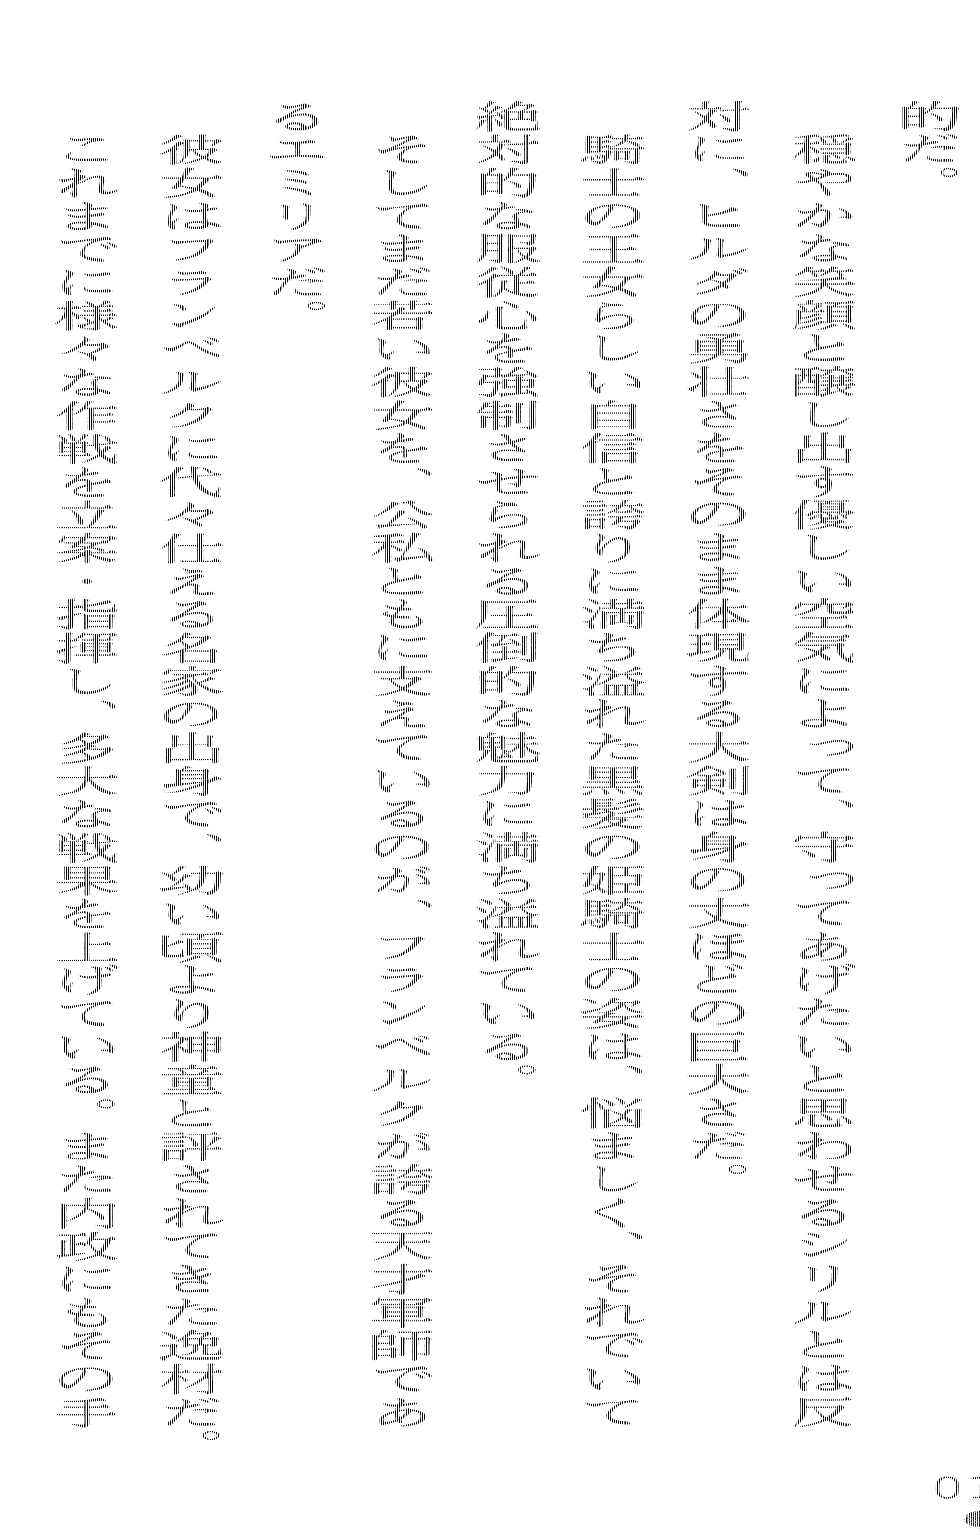 的だ。
穏やかな笑顔と醸し出す優しい空気によって、守ってあげたいと思わせるシリルとは反
対に、ヒルダの勇壮さをそのまま体現する大剣は身の丈ほどの巨大さだ。
騎士の王女らしい自信と誇りに満ち溢れた黒髪の姫騎士の姿は、悩ましく、それでいて
絶対的な服従心を強制させられる圧倒的な魅力に満ち溢れている。
そしてまだ若い彼女を、公私ともに支えているのが、フランベルクが誇る天才軍師であ
るエミリアだ。
彼女はフランベルクに代々仕える名家の出身で、幼い頃より神童と評されてきた逸材だ。
これまでに様々な作戦を立案・指揮し、多大な戦果を上げている。また内政にもその手